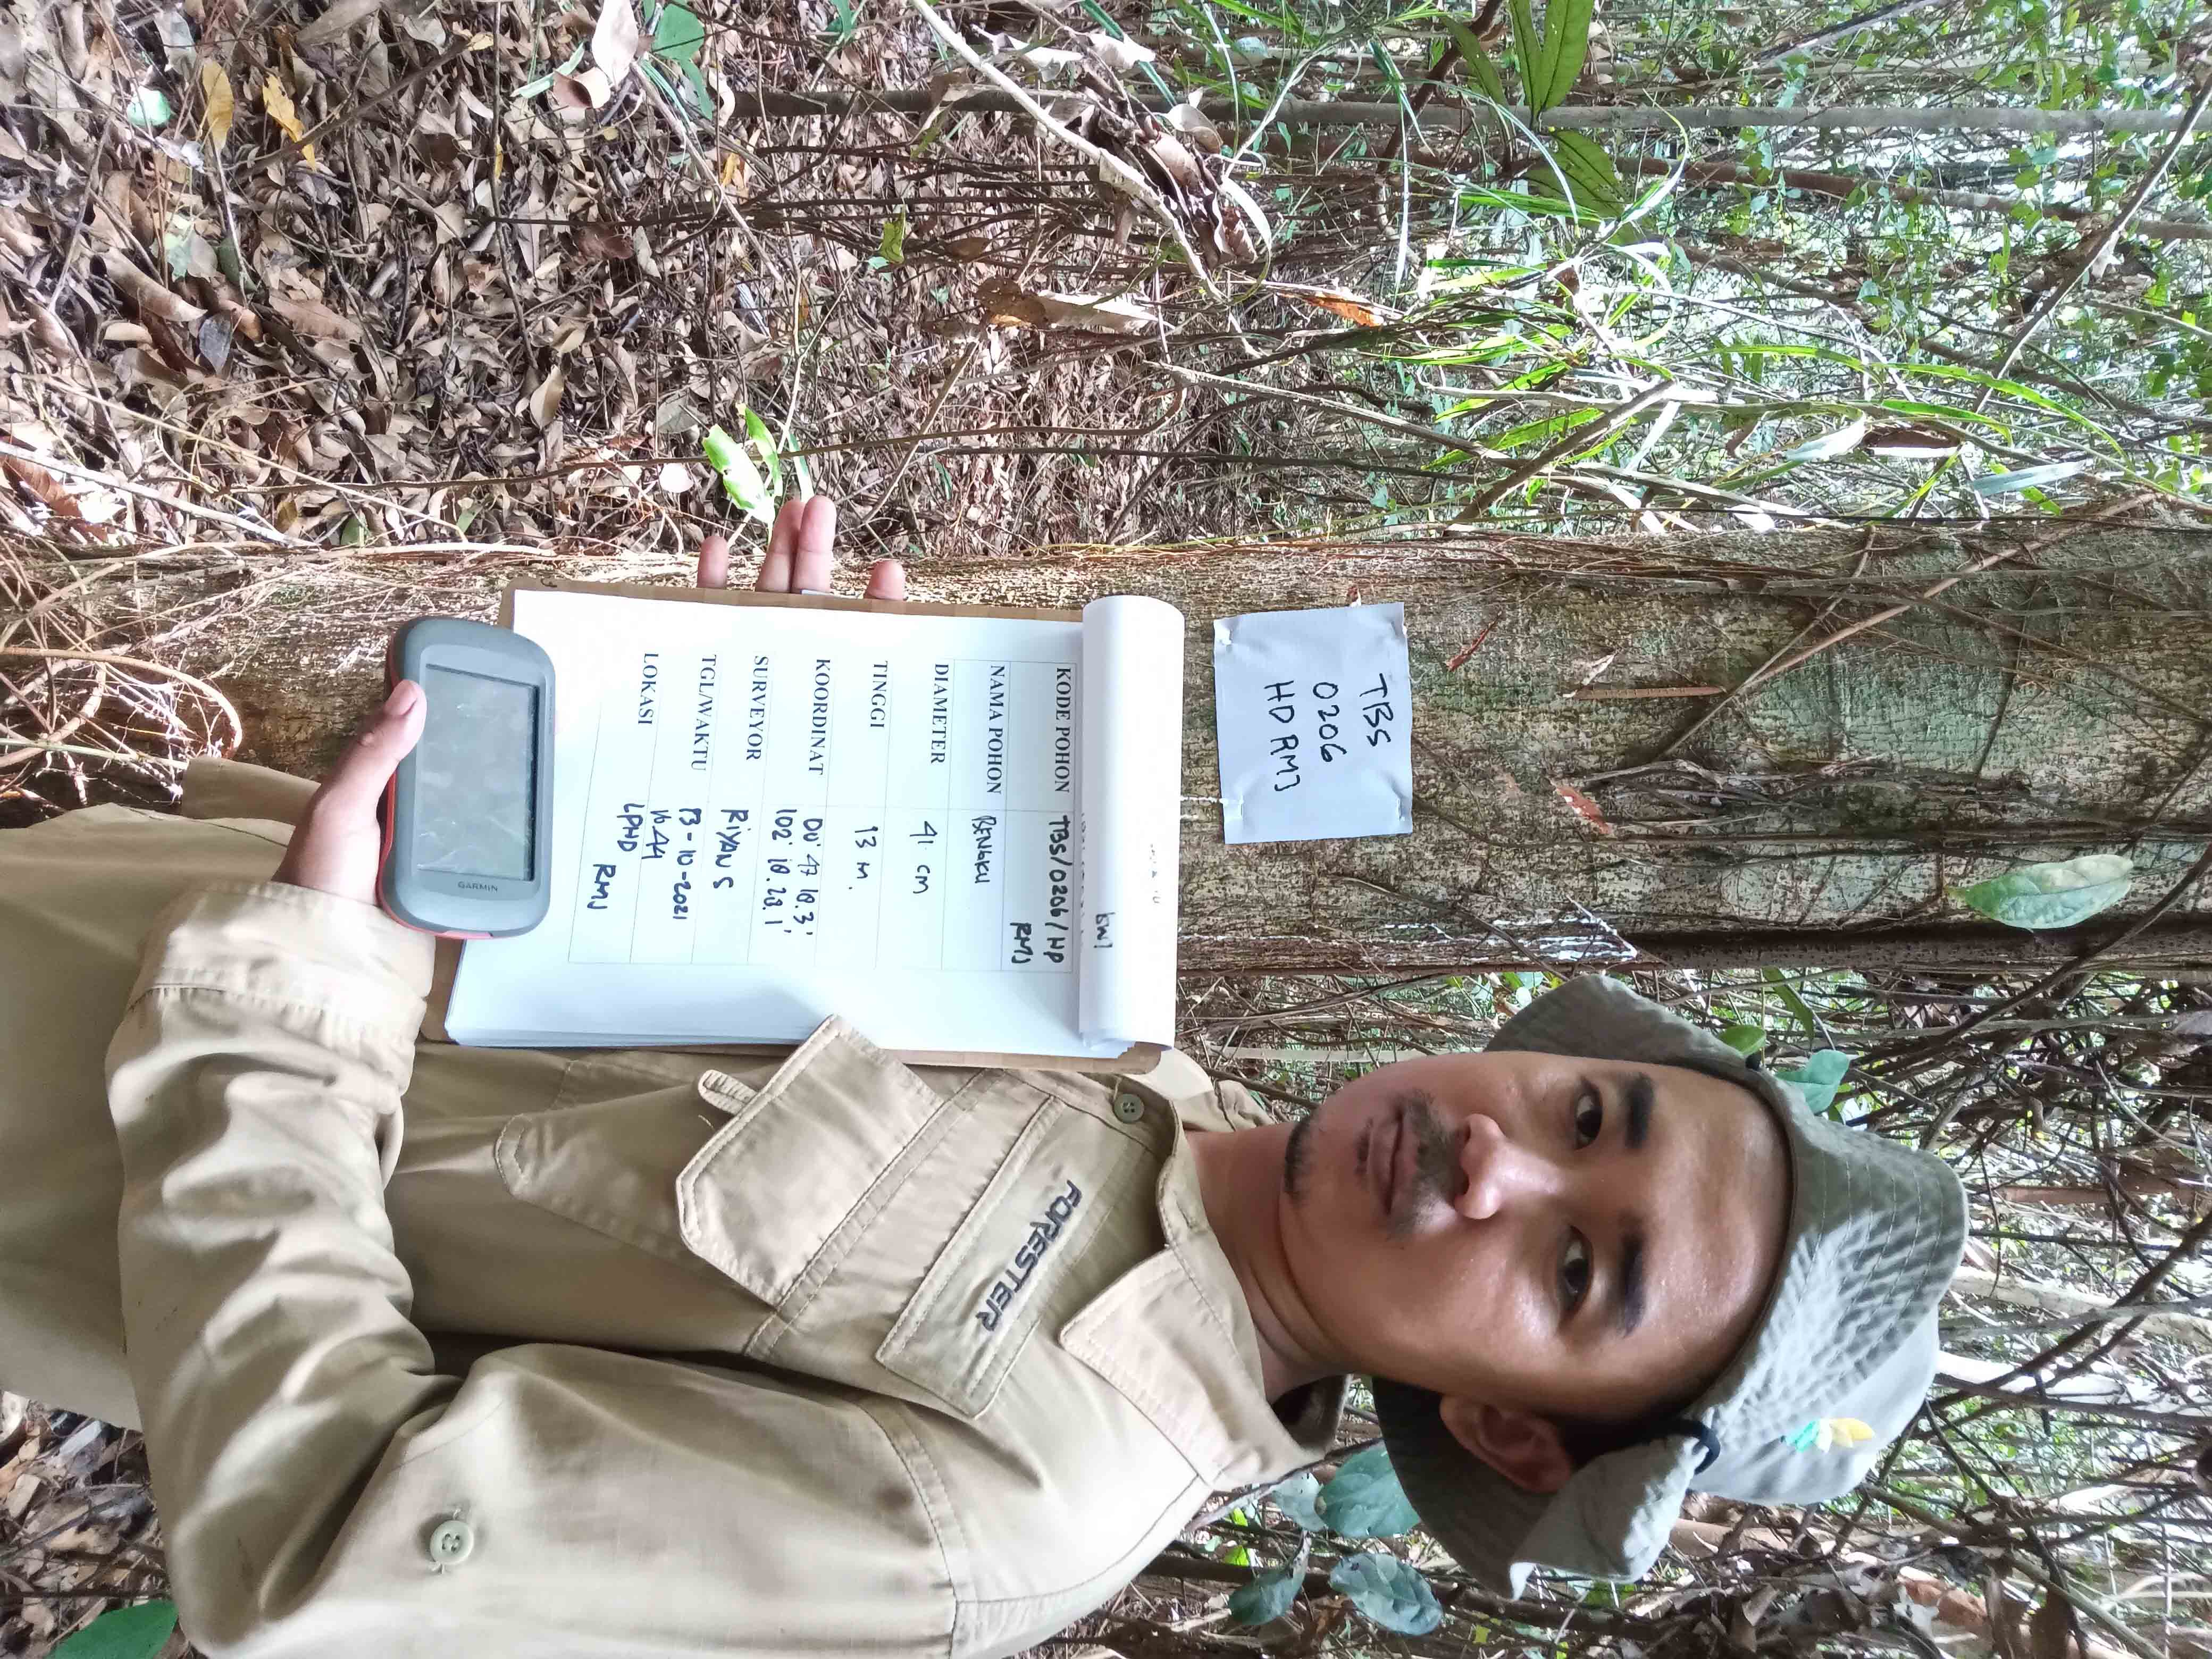 TBS
0206
HD RMJ
KODE POHON TBS/0206/HP
RMJ
NAMA POHON BENGKU
DIAMETER 41 cm
TINGGI 13 m.
KOORDINAT 00° 47' 10.3"
102° 10' 20.1"
SURVEYOR RIYAN S
TGL/WAKTU 13-10-2021
10.44
LOKASI LPHD
RMJ
GARMIN
FORESTER